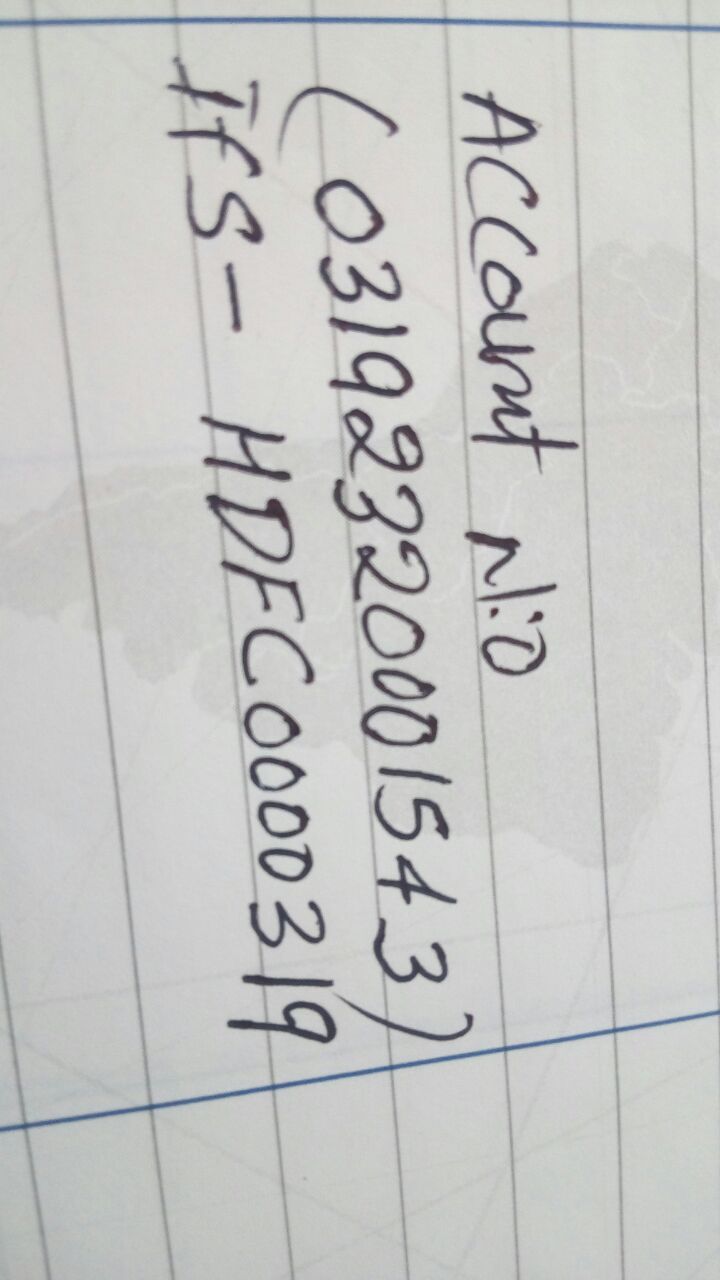 ACCount N:0
(03192320001543)
IFS- HDFC0000319